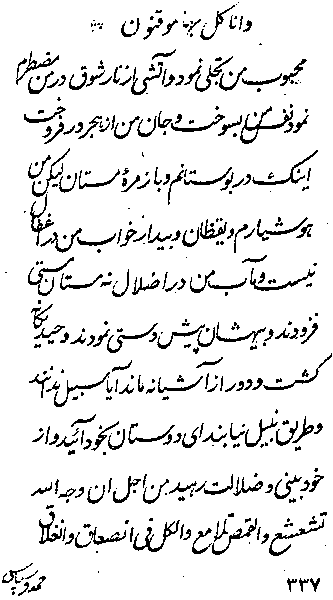 وانا کل به موقنون
محبوب من تجلی نمود و آتشی از نار شوق در من مضطرم
نمود نفس من بسوخت و جان من از هجر در فروخت
اینک در بوستانم و با زمرهٔ مستان لیکن من
هوشیارم و یقظان و بیدار خواب من در اغفال
نیست و مآب من در اضلال نه مستان مستی
فزودند و بیهشان پیش دستی نمودند وحید یگانه
گشت و دور از آشیانه ماند آیا سبیل ندانند
و طریق نبیل نیابند ای دوستان بخود آئید و از
خود بینی و ضلالت رهید من اجل ان وجه الله
تشعشع و القمص تلامع والکل فی انصعاق وانغلاق
۳۳۷